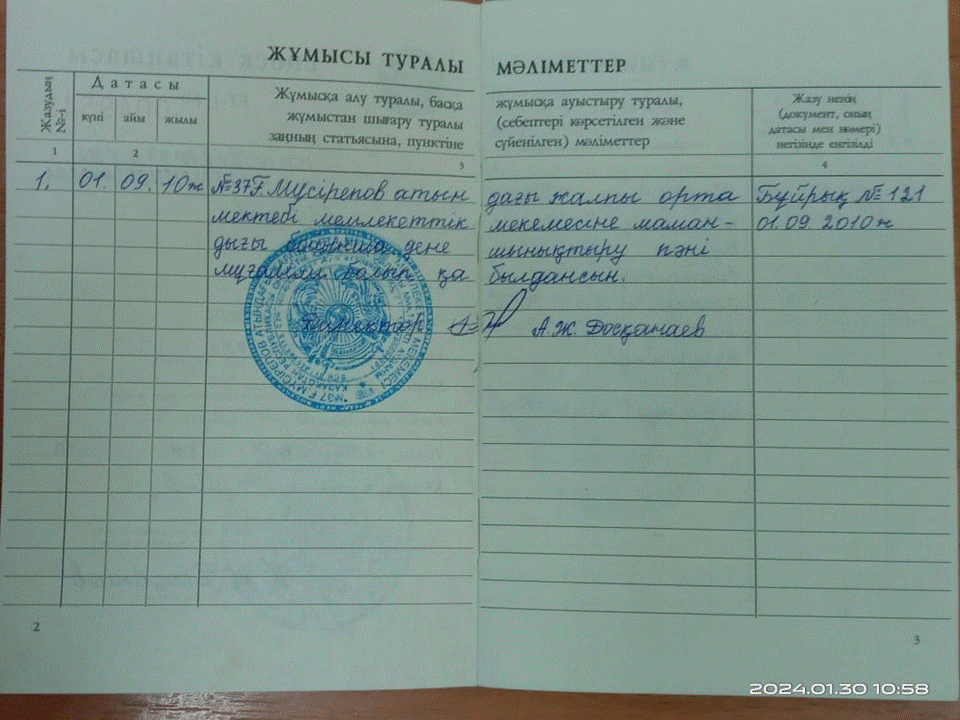 ЖҰМЫСЫ ТУРАЛЫ МӘЛІМЕТТЕР
Жазудың №-і
Датасы
күні айы жылы
Жұмысқа алу туралы, басқа
жұмыстан шығару туралы
заңның статьясына, пунктіне
жұмысқа ауыстыру туралы,
(себептері көрсетілген және
сүйенілген) мәліметтер
Жазу ненің
(документ, оның
датасы мен нөмері)
негізінде енгізілді
1 2 3 4
1. 01. 09. 10ж №37 Ғ.Мүсірепов атын дағы жалпы орта Бұйрық №121
мектебі мемлекеттік мекемесіне маман- 01.09.2010ж
дығы бойынша дене шынықтыру пәні
мұғалімі болып қа былдансын.
Директор А.Ж. Досқанаев
2
3
2024.01.30 10:58